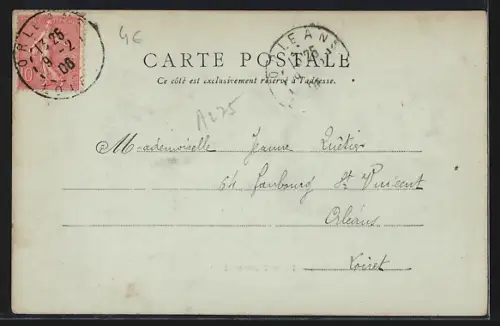 4E
ORLEANS
13 25
9 - 2
06
CARTE POSTALE
Ce côté est exclusivement réservé à l'adresse.
ORLEANS
25
A275
Mademoiselle Jeanne Quétier
64 Faubourg St Vincent
Orléans
Loiret